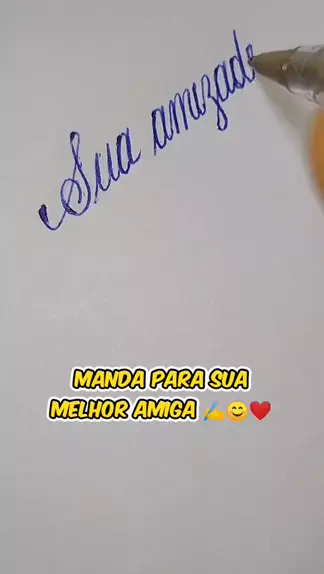 Sua amizade
MANDA PARA SUA
MELHOR AMIGA ✍️😊❤️